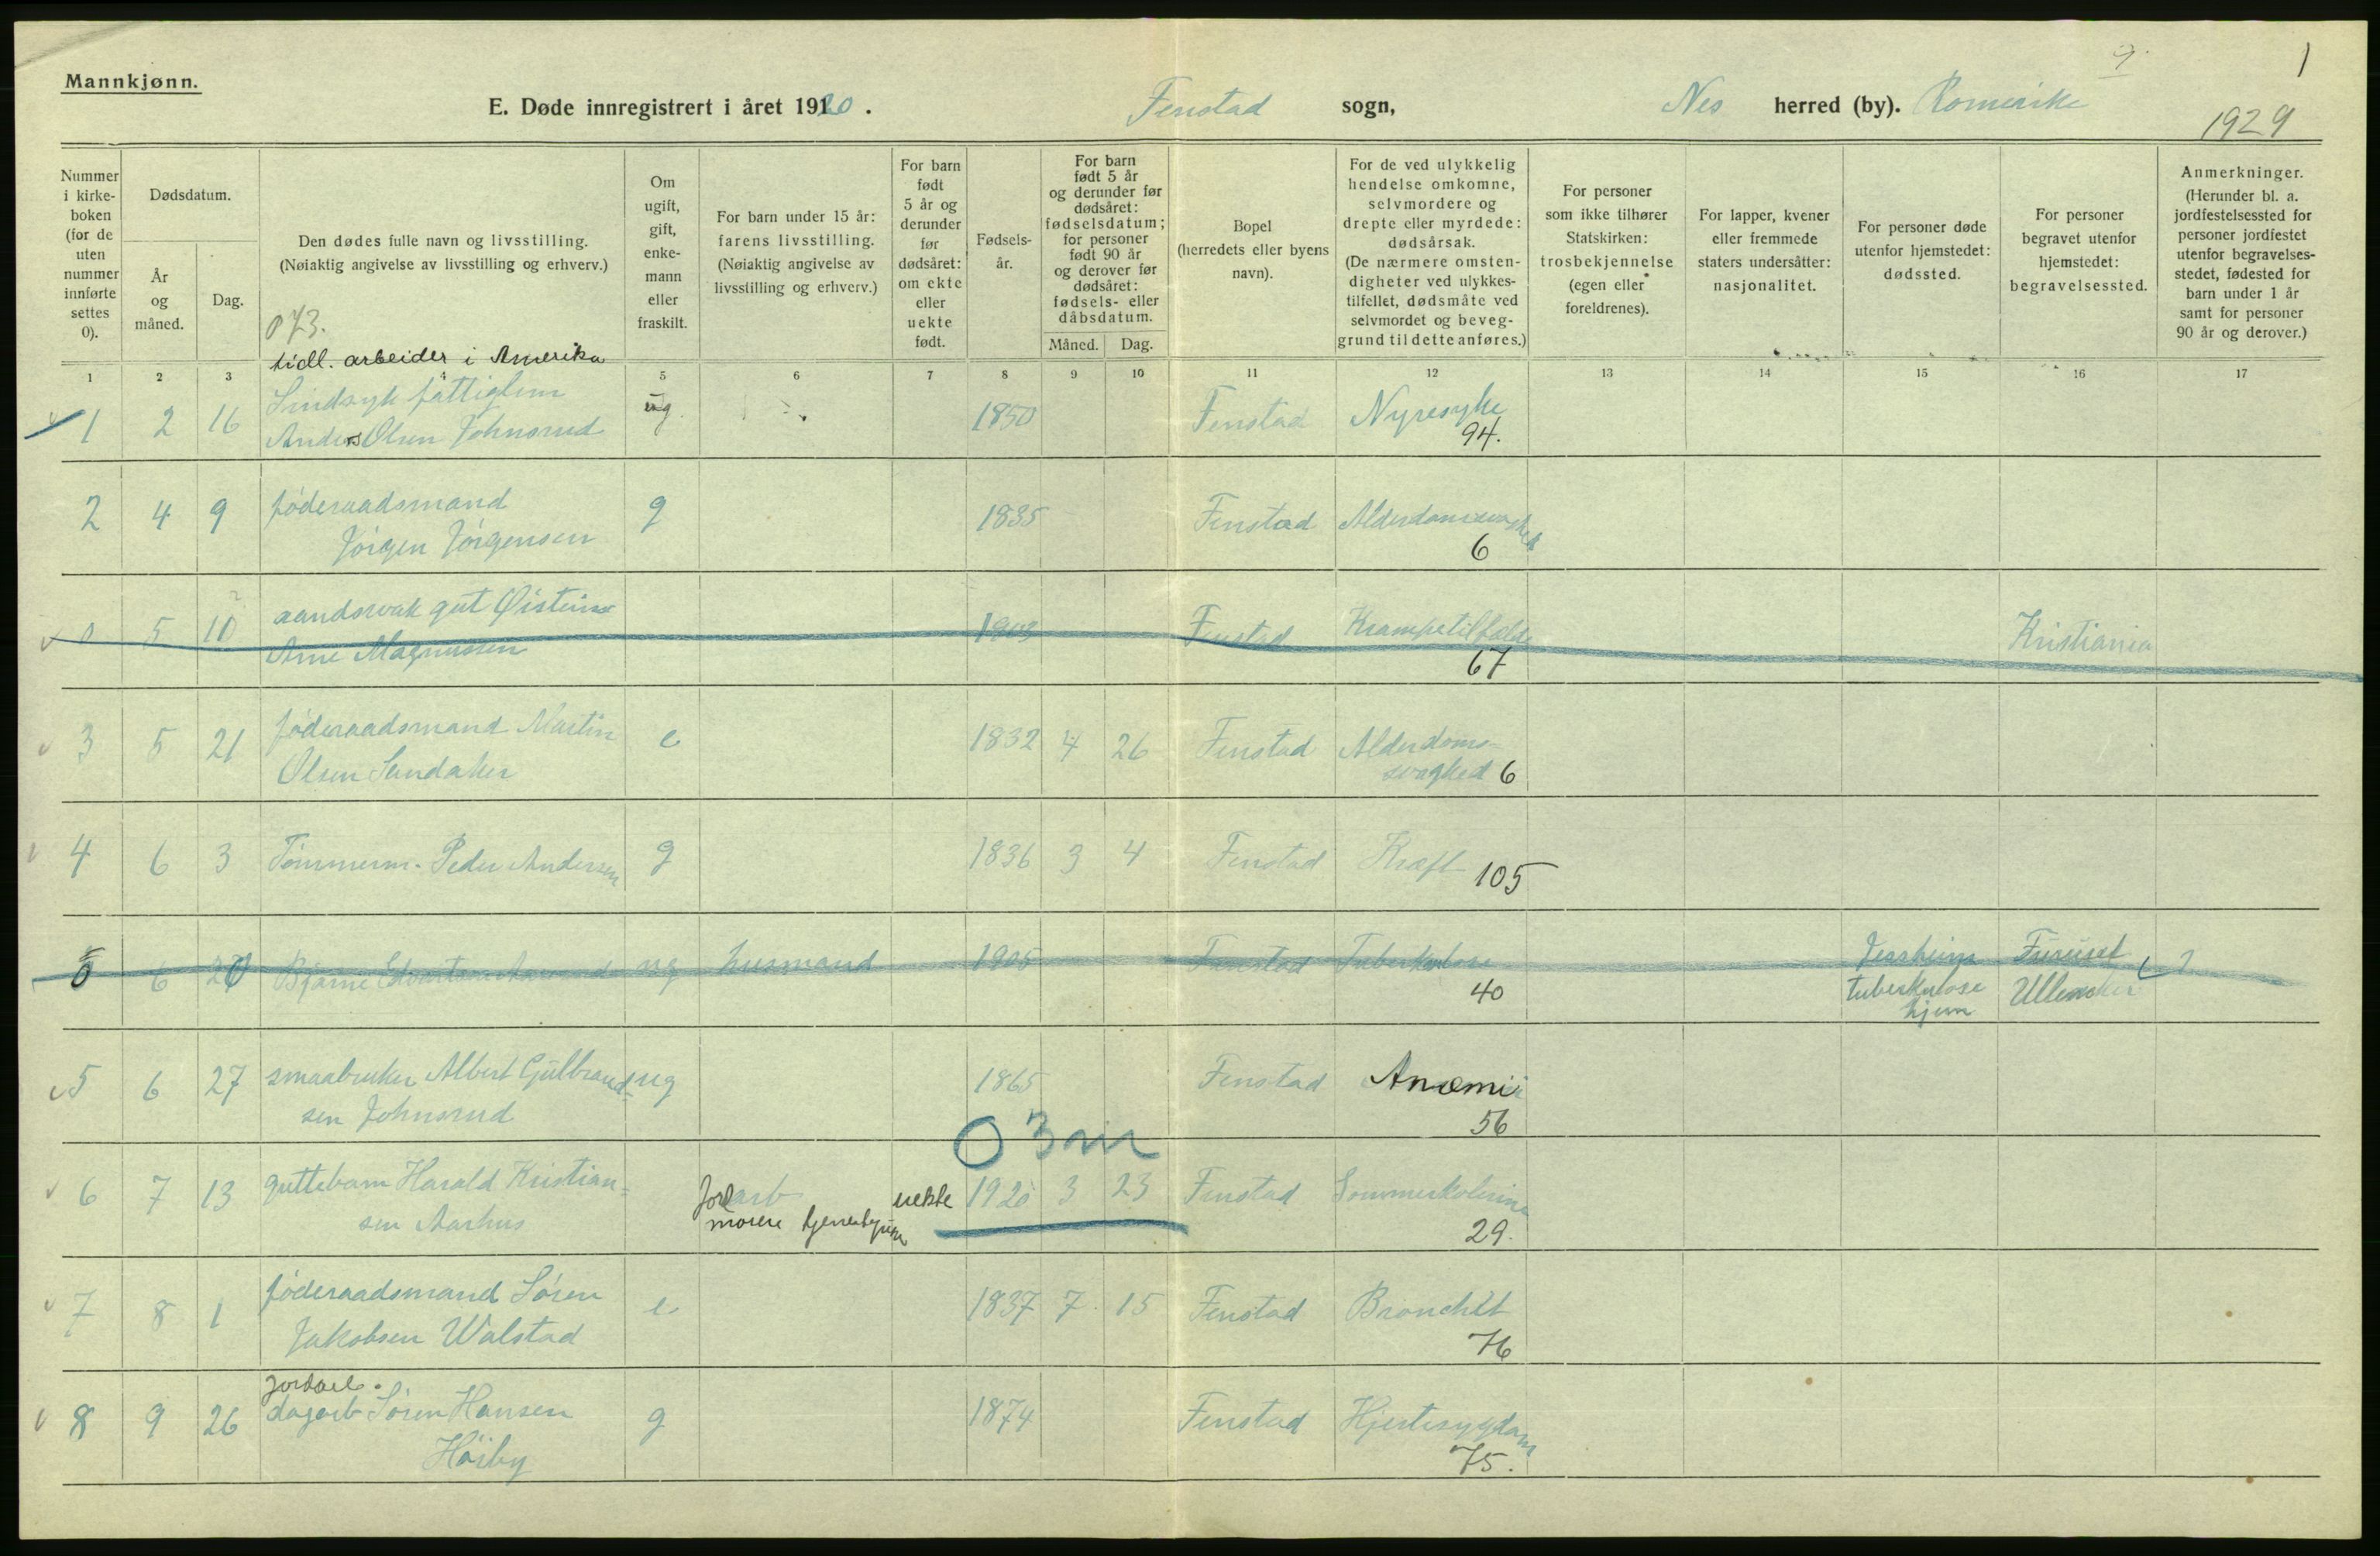 Mannkjønn.
9.
1
E. Døde innregistrert i året 1920.
Fenstad sogn,
Nes herred (by). Romerike
1929
Nummer i kirkeboken (for de uten nummer innførte settes 0).
Dødsdatum.
År og måned.
Dag.
Den dødes fulle navn og livsstilling.
(Nøiaktig angivelse av livsstilling og erhverv.)
073.
Om ugift, gift, enkemann eller fraskilt.
For barn under 15 år: farens livsstilling. (Nøiaktig angivelse av livsstilling og erhverv.)
For barn født 5 år og derunder før dødsåret: om ekte eller uekte født.
Fødselsår.
For barn født 5 år og derunder før dødsåret: fødselsdatum; for personer født 90 år og derover før dødsåret: fødsels- eller dåbsdatum.
Måned. Dag.
Bopel (herredets eller byens navn).
For de ved ulykkelig hendelse omkomne, selvmordere og drepte eller myrdede: dødsårsak. (De nærmere omstendigheter ved ulykkestilfellet, dødsmåte ved selvmordet og beveggrund til dette anføres.)
For personer som ikke tilhører Statskirken: trosbekjennelse (egen eller foreldrenes).
For lapper, kvener eller fremmede staters undersåtter: nasjonalitet.
For personer døde utenfor hjemstedet: dødssted.
For personer begravet utenfor hjemstedet: begravelsessted.
Anmerkninger. (Herunder bl. a. jordfestelsessted for personer jordfestet utenfor begravelsesstedet, fødested for barn under 1 år samt for personer 90 år og derover.)
1 2 3 4 5 6 7 8 9 10 11 12 13 14 15 16 17
tidl. arbeider i Amerika
Sindsyk fattiglem
1 2 16 Anders Olsen Johnsrud ug. 1850 Fenstad Nyresyke
94.
2 4 9 føderaadsmand g 1835 Fenstad Alderdomssvaghed
Jörgen Jörgensen 6
0 5 10 aandsvak gut Øistein 1903 Fenstad Krampetilfælde Kristiania
Arne Magnussen 67
3 5 21 föderaadsmand Martin e 1832 4 26 Fenstad Alderdoms-
Olsen Sandaker svaghed 6
4 6 3 Tömmerm. Peder Andersen g 1836 3 4 Fenstad Kræft 105
0 6 20 Bjarne ug husmand 1905 Fenstad Tuberkulose Jessheim Furuset
40 tuberkulose Ullensaker
hjem
5 6 27 smaabruker Albert Gulbrand- ug 1865 Fenstad Anæmi
sen Johnsrud 56
0 3 m
6 7 13 guttebarn Harald Kristian- Jordarb uekte 1920 3 23 Fenstad Sommerkolerine
sen Aarhus moren 29.
7 8 1 föderaadsmand Sören e 1837 7 15 Fenstad Bronchit
Jakobsen Walstad 76
Jordarb.
8 9 26 dagarb Sören Hansen g 1874 Fenstad Hjertesygdom
Höiby 75.